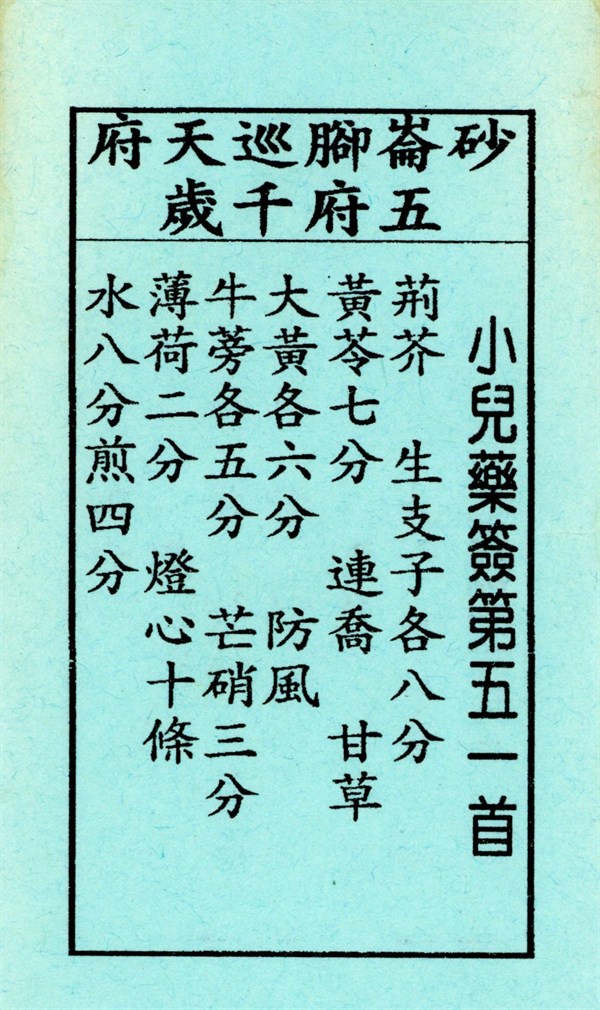 砂崙腳巡天府
五府千歲
小兒藥簽第五一首
荊芥 生支子各八分
黃苓七分 連喬 甘草
大黃各六分 防風
牛蒡各五分 芒硝三分
薄荷二分 燈心十條
水八分煎四分